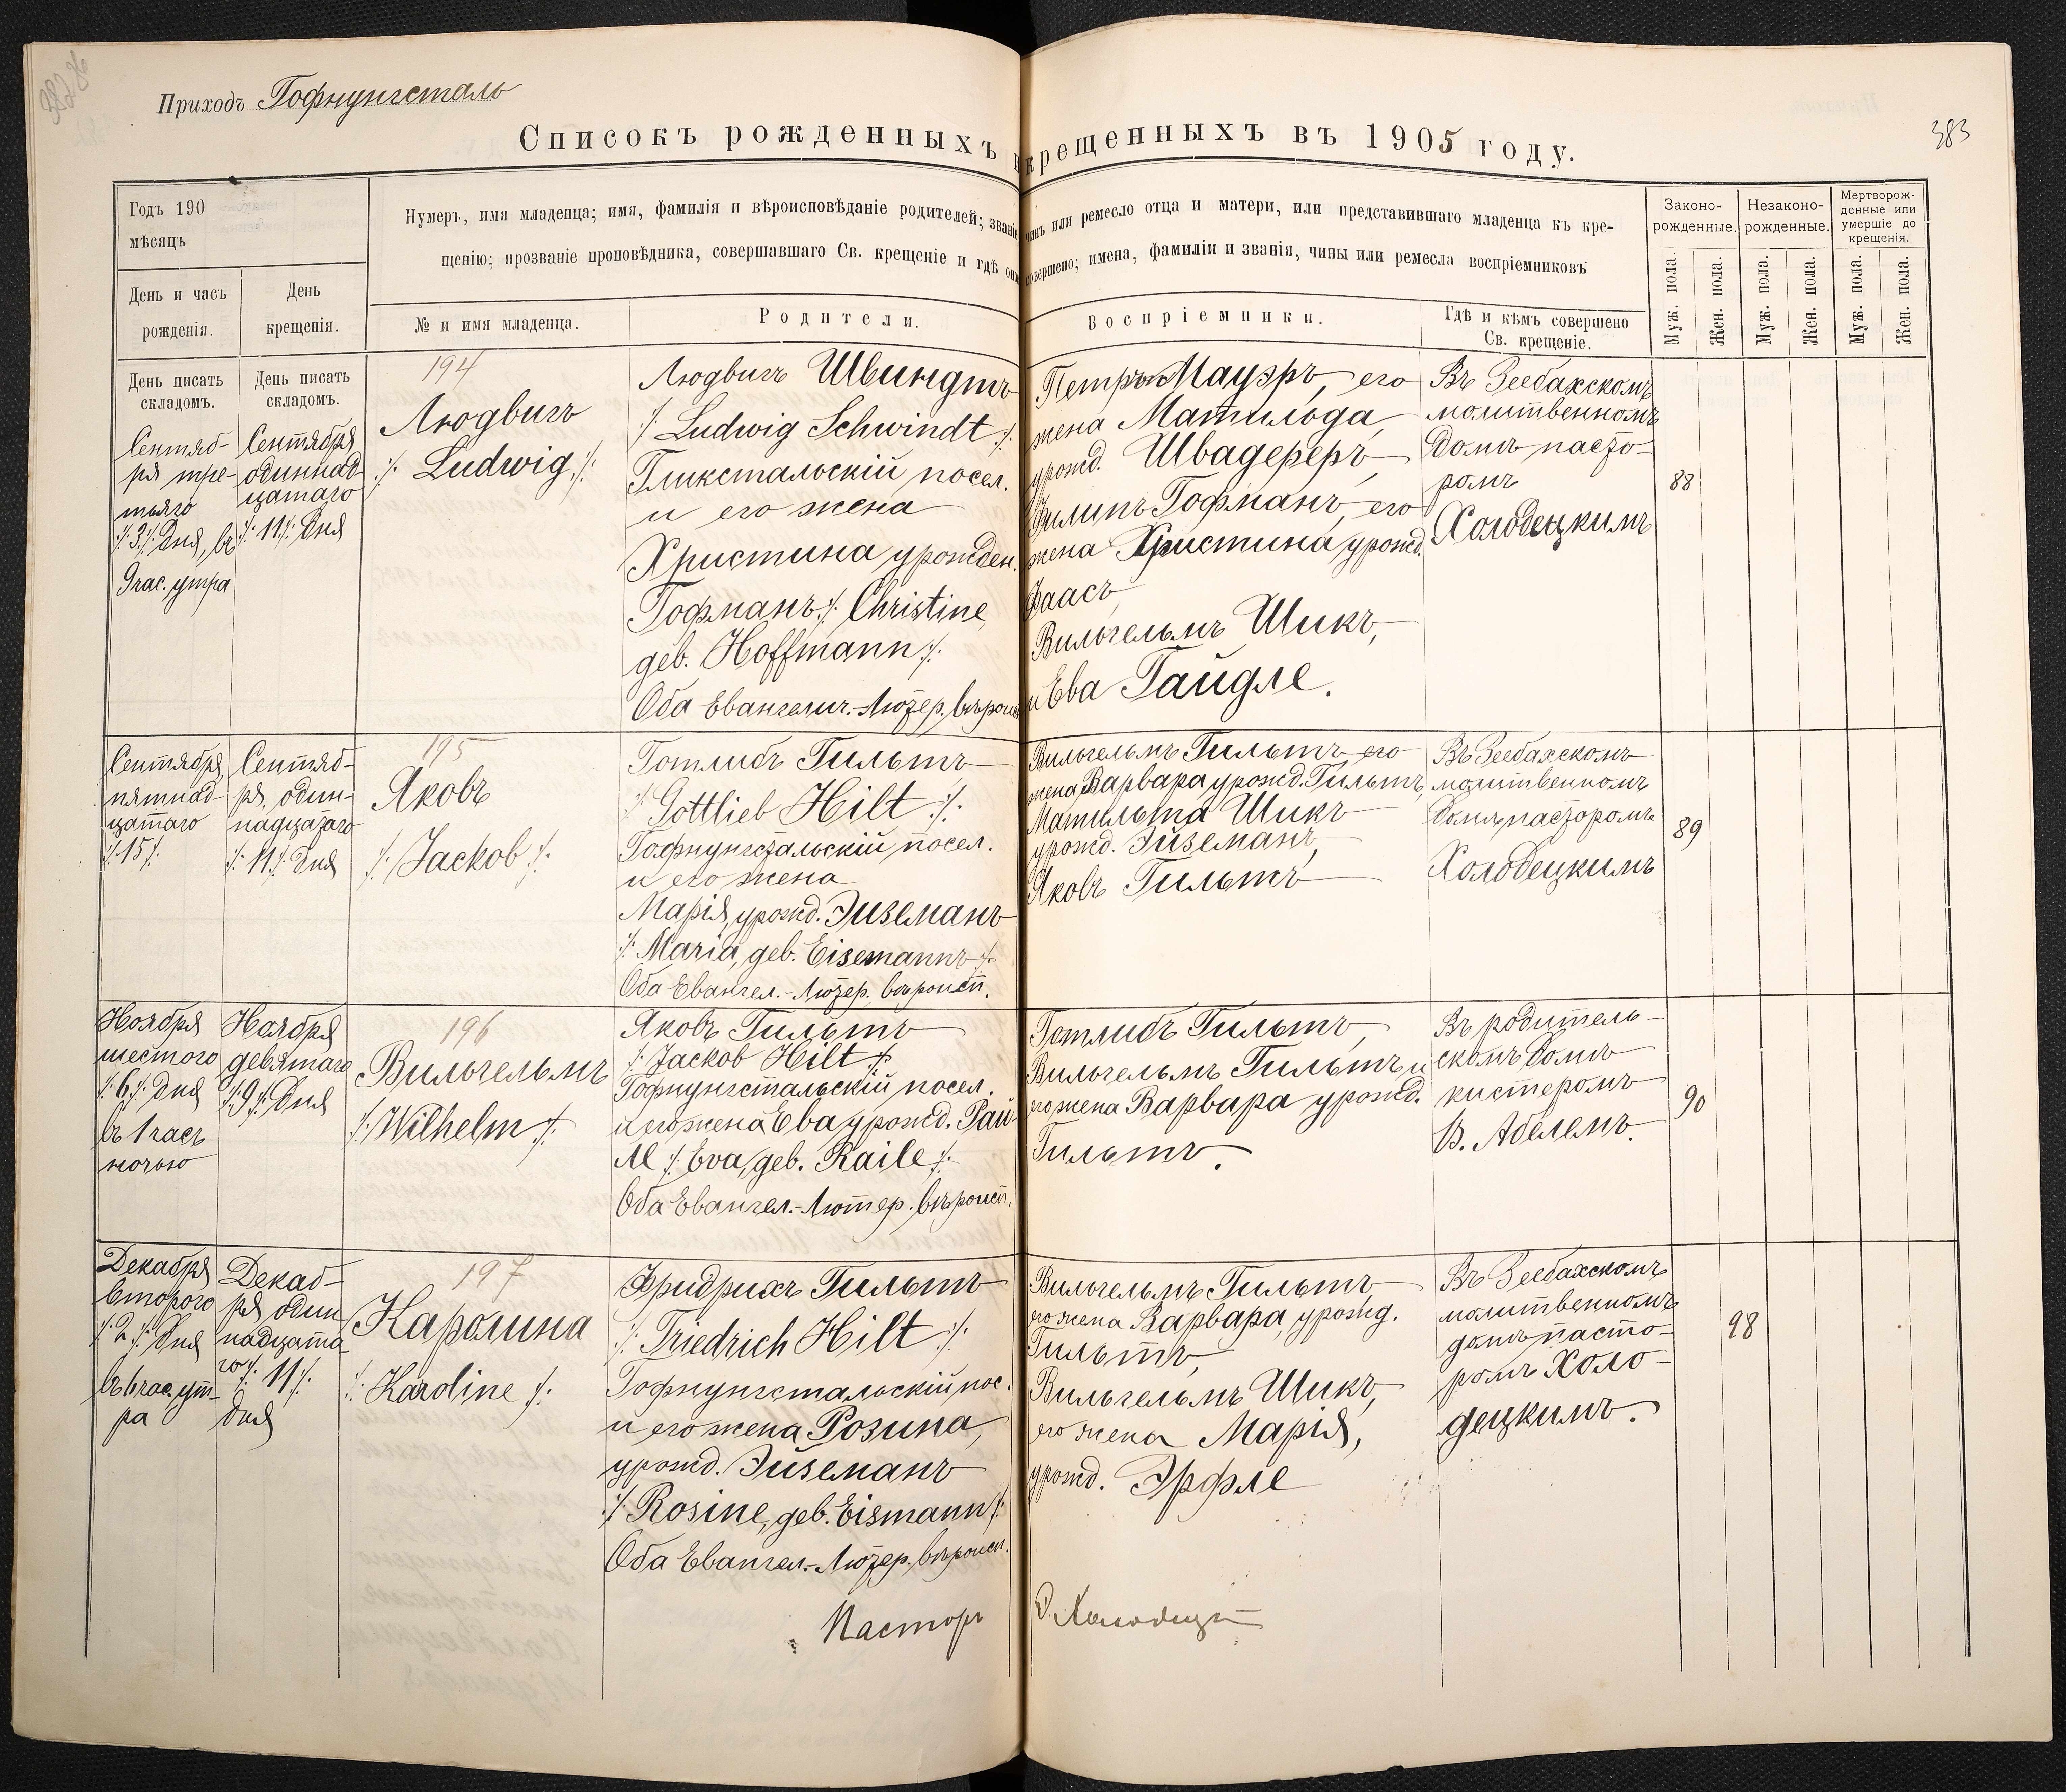 Приходъ Гофнунгсталь
383
Списокъ рожденныхъ и крещенныхъ въ 1905 году.
Годъ 190
мѣсяцъ
День и часъ
рожденія.
День
крещенія.
Нумеръ, имя младенца; имя, фамилія и вѣроисповѣданіе родителей; званіе, чинъ или ремесло отца и матери, или представившаго младенца къ кре-
щенію; прозваніе проповѣдника, совершавшаго Св. крещеніе и гдѣ оное совершено; имена, фамиліи и званія, чины или ремесла воспріемниковъ
№ и имя младенца.
Родители.
Воспріемники.
Гдѣ и кѣмъ совершено
Св. крещеніе.
Законо-
рожденные.
Незаконо-
рожденные.
Мертворож-
денные или
умершіе до
крещенія.
Муж. пола.
Жен. пола.
Муж. пола.
Жен. пола.
Муж. пола.
Жен. пола.
День писать
складомъ.
День писать
складомъ.
Сентяб-
ря тре-
тьяго
/:3:/ дня, въ
9 час. утра
Сентября
одиннад-
цатаго
/:11:/ дня
194
Людвигъ
/: Ludwig :/
Людвигъ Швиндтъ
/: Ludwig Schwindt :/
Гликстальскій посел.
и его жена
Христина урожден.
Гофманъ /: Christine,
geb. Hoffmann :/
Оба Евангелич.-Лютер. вѣроисп.
Петръ Мауэръ, его
жена Матильда,
урожд. Швадереръ,
Филипъ Гофманъ, его
жена Христина урожд.
Фаасъ,
Вильгельмъ Шикъ,
и Ева Гайдле.
Въ Зеебахскомъ
молитвенномъ
домѣ пасто-
ромъ
Холодецкимъ
88
Сентября
пятнад-
цатаго
/:15:/
Сентяб-
ря, один-
надцатаго
/:11:/ дня
195
Яковъ
/: Jackob :/
Готлибъ Гильтъ
/: Gottlieb Hilt :/
Гофнунгстальскій посел.
и его жена
Марія, урожд. Эйземанъ
/: Maria, geb. Eisemannъ :/
Оба Евангел.-Лютер. вѣроисп.
Вильгельмъ Гильтъ его
жена Варвара урожд. Гильтъ,
Матильта Шикъ
урожд. Эйземанъ,
Яковъ Гильтъ
Въ Зеебахскомъ
молитвенномъ
домѣ пасторомъ
Холодецкимъ
89
Ноября
шестого
/:6:/ дня
въ 1 часъ
ночью
Ноября
девятаго
/:9:/ дня
196
Вильгельмъ
/: Wilhelm :/
Яковъ Гильтъ
/: Jackob Hilt :/
Гофнунгстальскій посел.
и его жена Ева урожд. Рай-
ле /: Eva, geb. Raile :/
Оба Евангел.-Лютер. вѣроисп.
Готлибъ Гильтъ,
Вильгельмъ Гильтъ, и
его жена Варвара урожд.
Гильтъ.
Въ родитель-
скомъ домѣ
кистеромъ
В. Абелемъ.
90
Декабря
второго
/:2:/ дня
ут-
ра
Декаб-
ря один
надцата-
го /:11:/
дня
197
Каролина
/: Karoline :/
Фридрихъ Гильтъ
/: Friedrich Hilt :/
Гофнунгстальскій пос.
и его жена Розина,
урожд. Эйземанъ
/: Rosine, geb. Eismann :/
Оба Евангел.-Лютер. вѣроисп.
Вильгельмъ Гильтъ,
его жена Варвара, урожд.
Гильтъ,
Вильгельмъ Шикъ,
его жена Марія,
урожд. Эрфле
Въ Зеебахскомъ
молитвенномъ
домѣ пасто-
ромъ Холо-
децкимъ.
98
Пасторъ